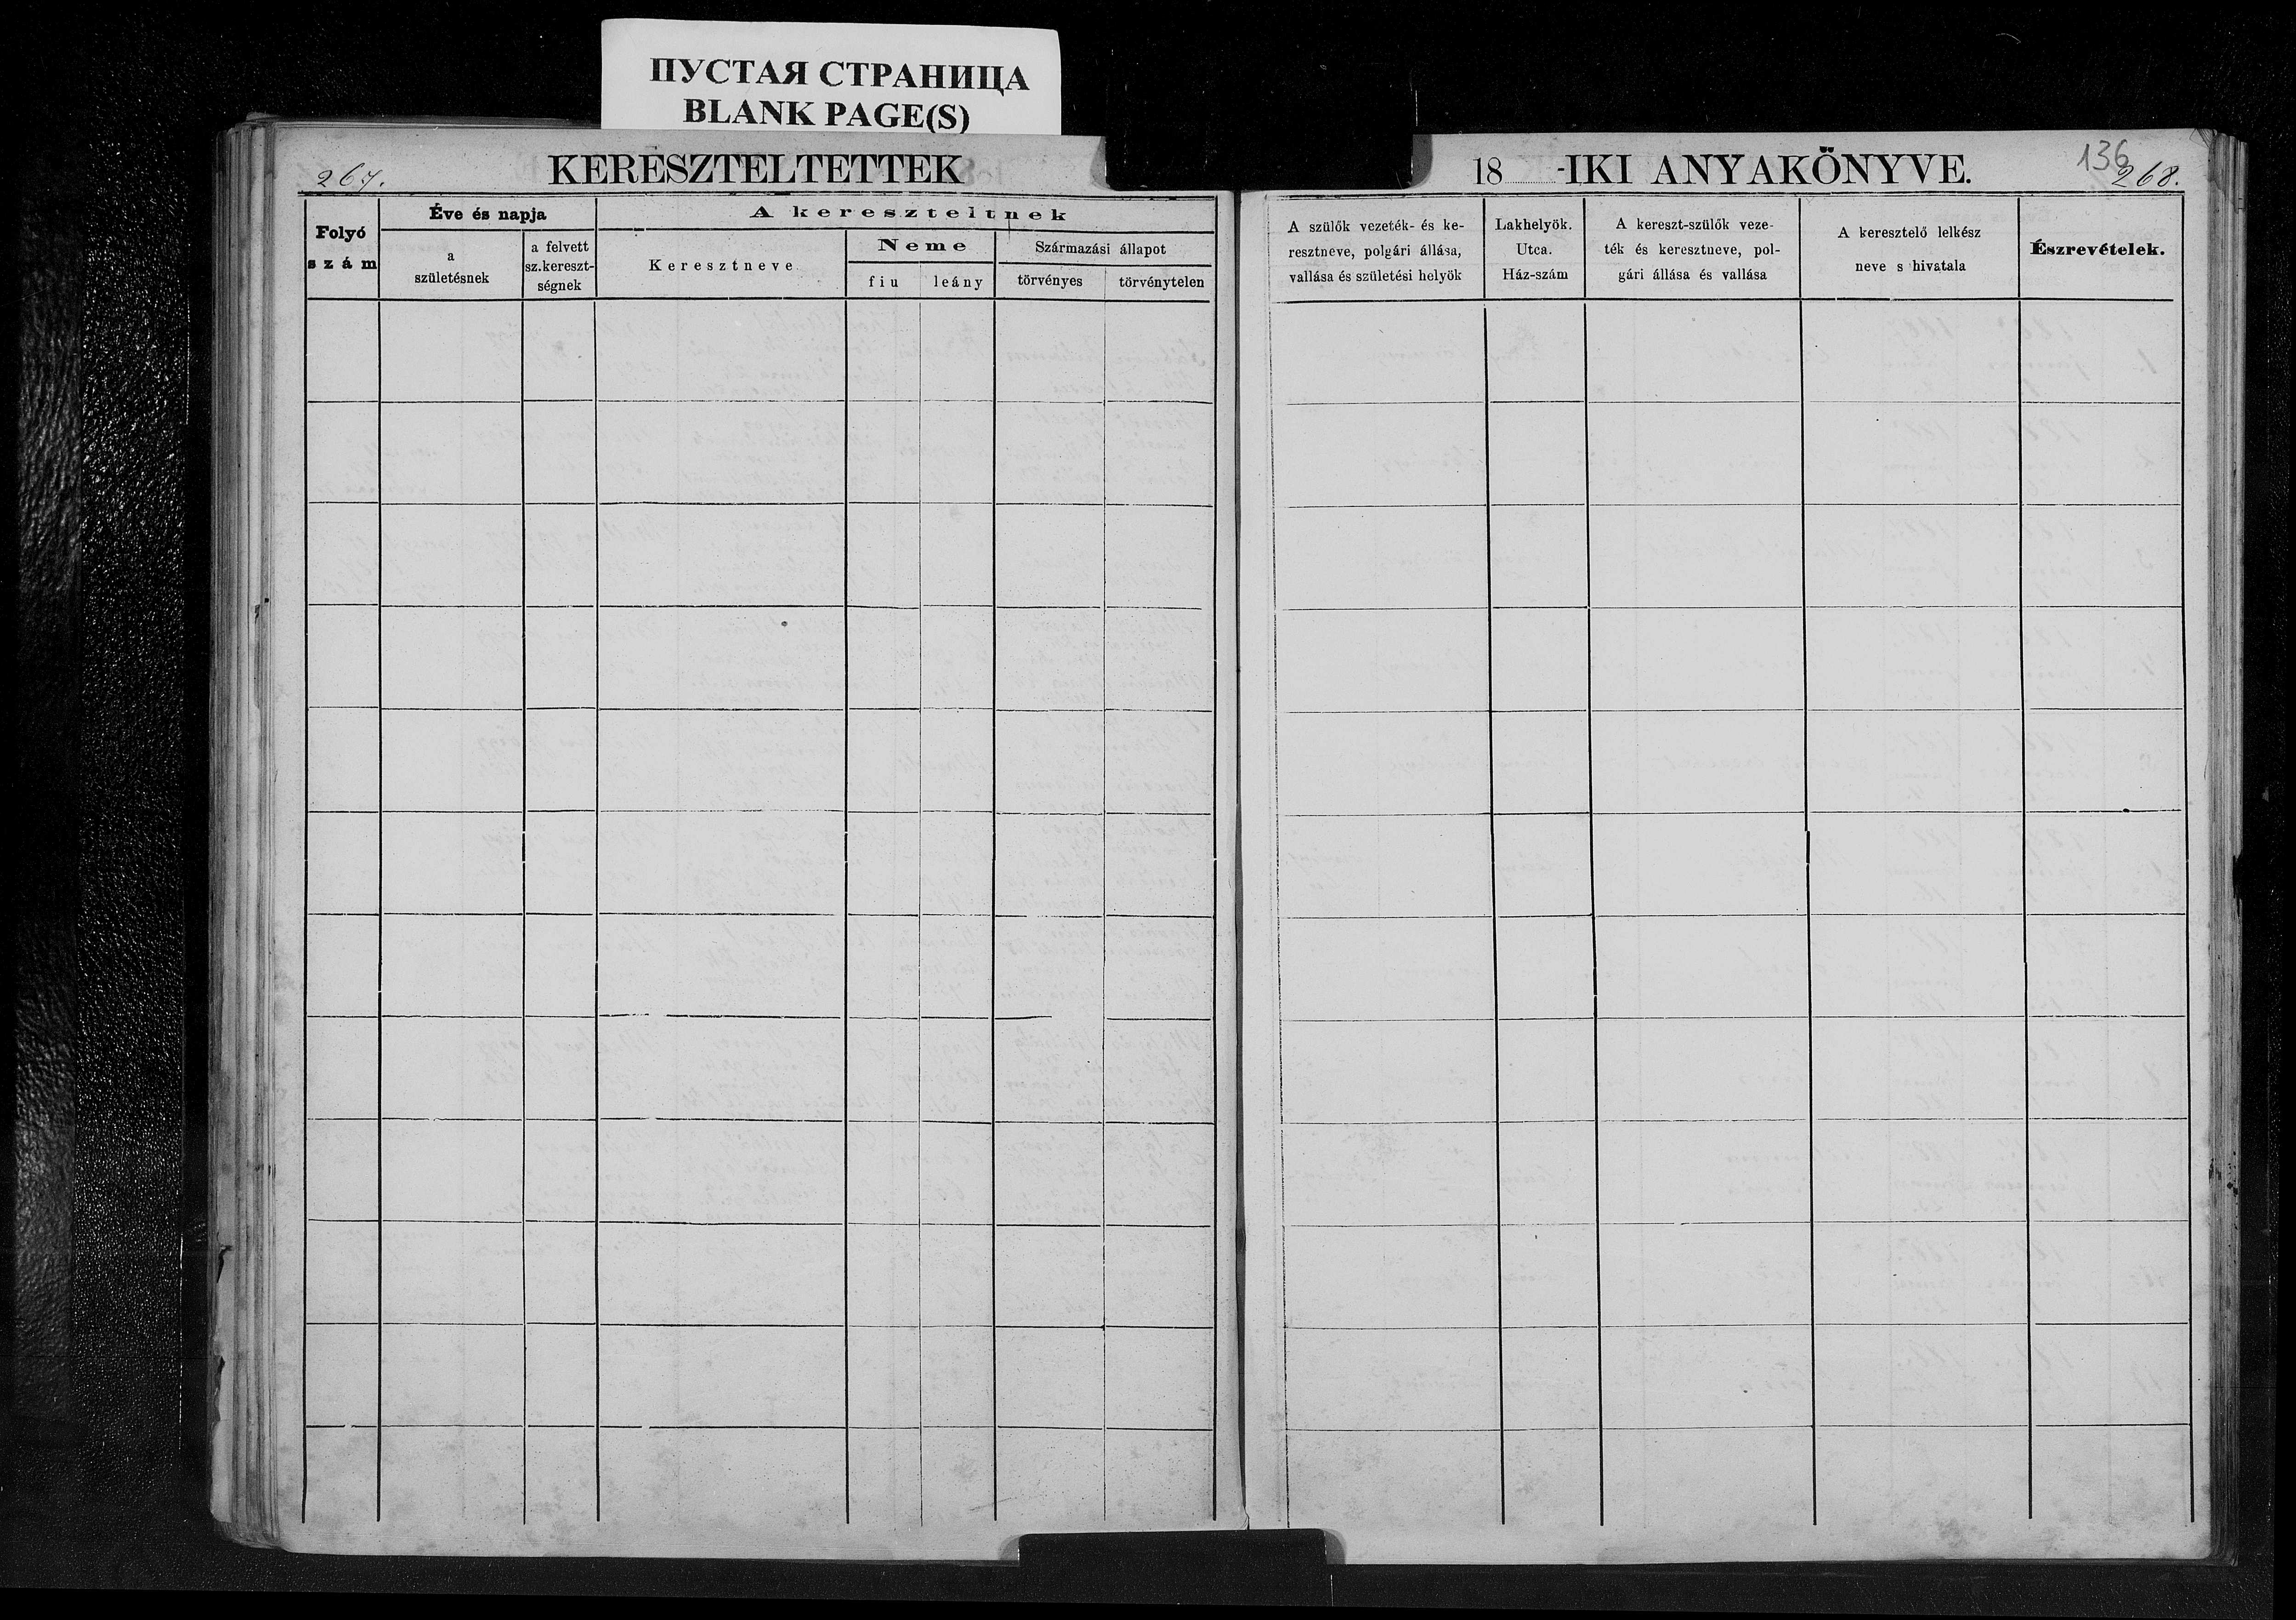 ПУСТАЯ СТРАНИЦА
BLANK PAGE(S)
267.
KERESZTELTETTEK
Folyó
szám
Éve és napja
a
születésnek
a felvett
sz.kereszt-
ségnek
A kereszteltnek
Keresztneve
Neme
fiu
leány
Származási állapot
törvényes
törvénytelen
18 -IKI ANYAKÖNYVE.
136
268.
A szülők vezeték- és ke-
resztneve, polgári állása,
vallása és születési helyök
Lakhelyök.
Utca.
Ház-szám
A kereszt-szülők veze-
ték és keresztneve, pol-
gári állása és vallása
A keresztelő lelkész
neve s hivatala
Észrevételek.